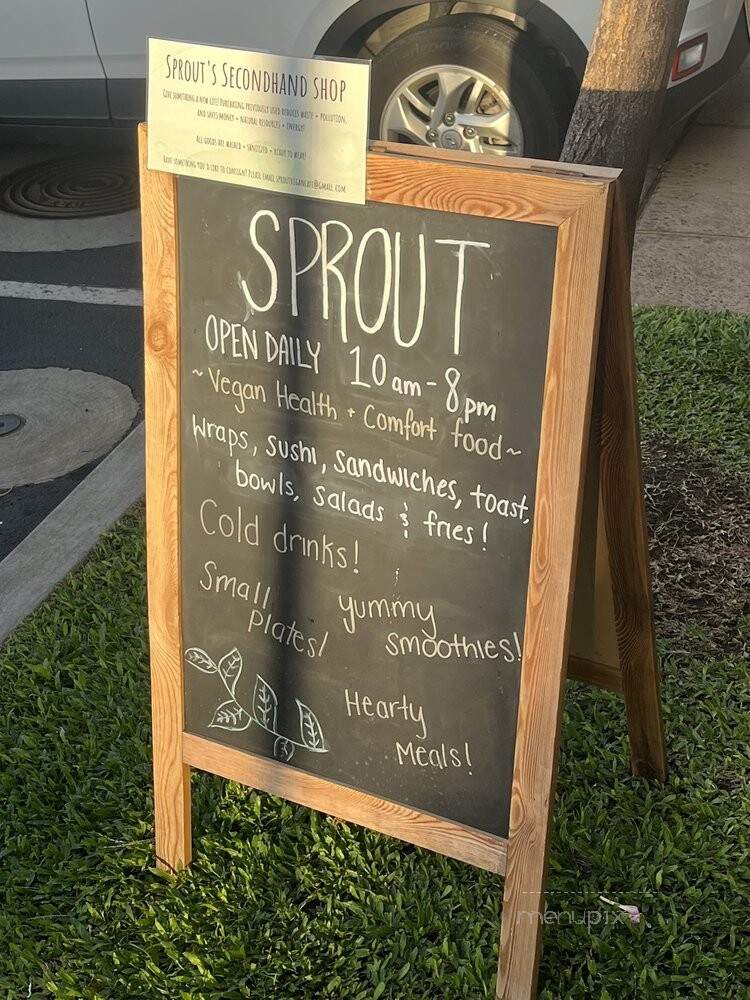 SPROUT'S SECONDHAND SHOP
GIVE SOMETHING A NEW LIFE! PURCHASING PREVIOUSLY USED REDUCES WASTE + POLLUTION,
AND SAVES MONEY + NATURAL RESOURCES + ENERGY!
ALL GOODS ARE WASHED + SANITIZED + READY TO WEAR!
HAVE SOMETHING YOU'D LIKE TO CONSIGN? PLEASE EMAIL SPROUTVEGANCAFE@GMAIL.COM
SPROUT
OPEN DAILY 10am-8pm
~Vegan Health + Comfort food~
Wraps, sushi, sandwiches, toast,
bowls, salads & fries!
Cold drinks!
Small
plates!
yummy
smoothies!
Hearty
Meals!
menupix